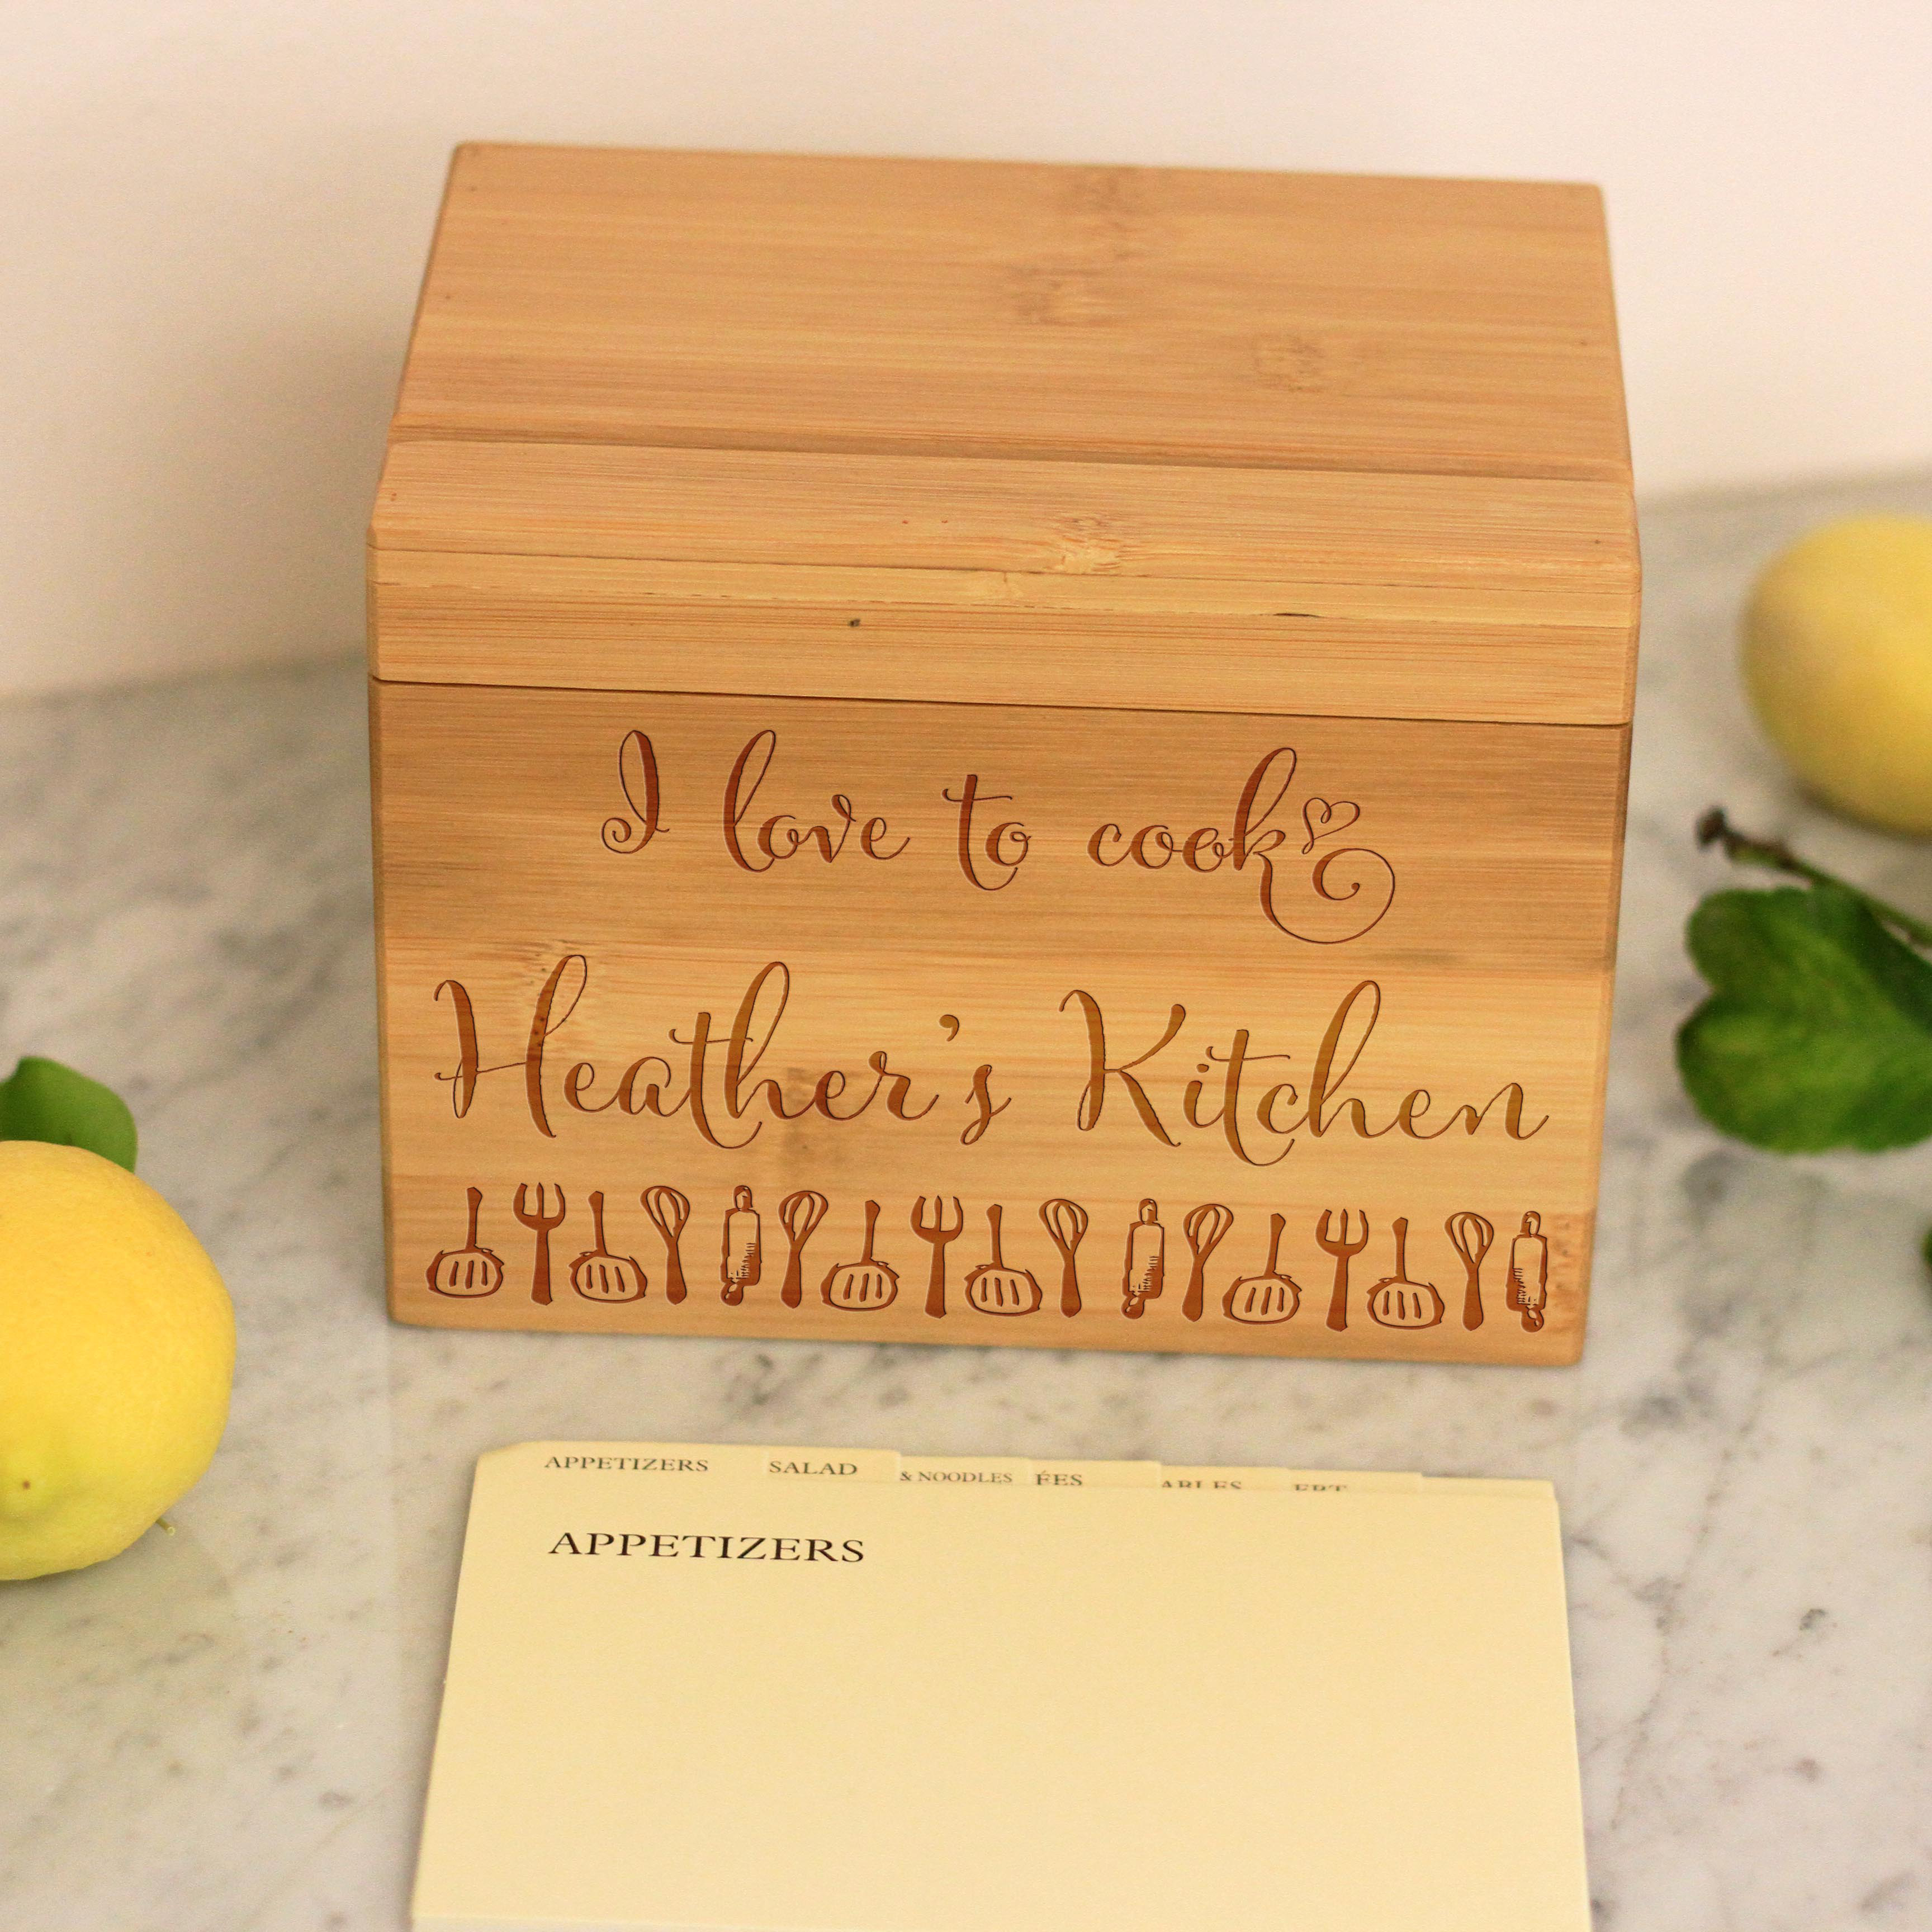 I love to cook
Heather's Kitchen
APPETIZERS SALAD & NOODLES ÉES
APPETIZERS